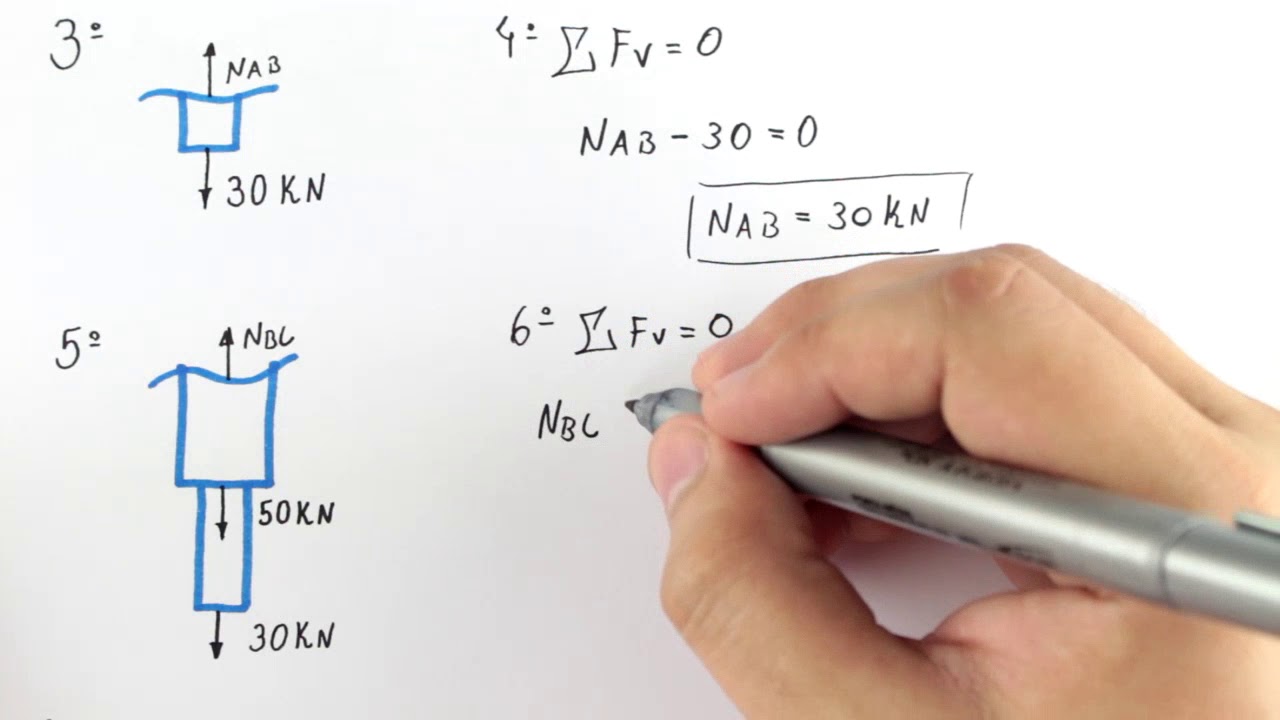 3º
NAB
30 KN
4º Σ Fv = 0
NAB - 30 = 0
NAB = 30 KN
5º
NBC
50 KN
30 KN
6º Σ Fv = 0
NBC